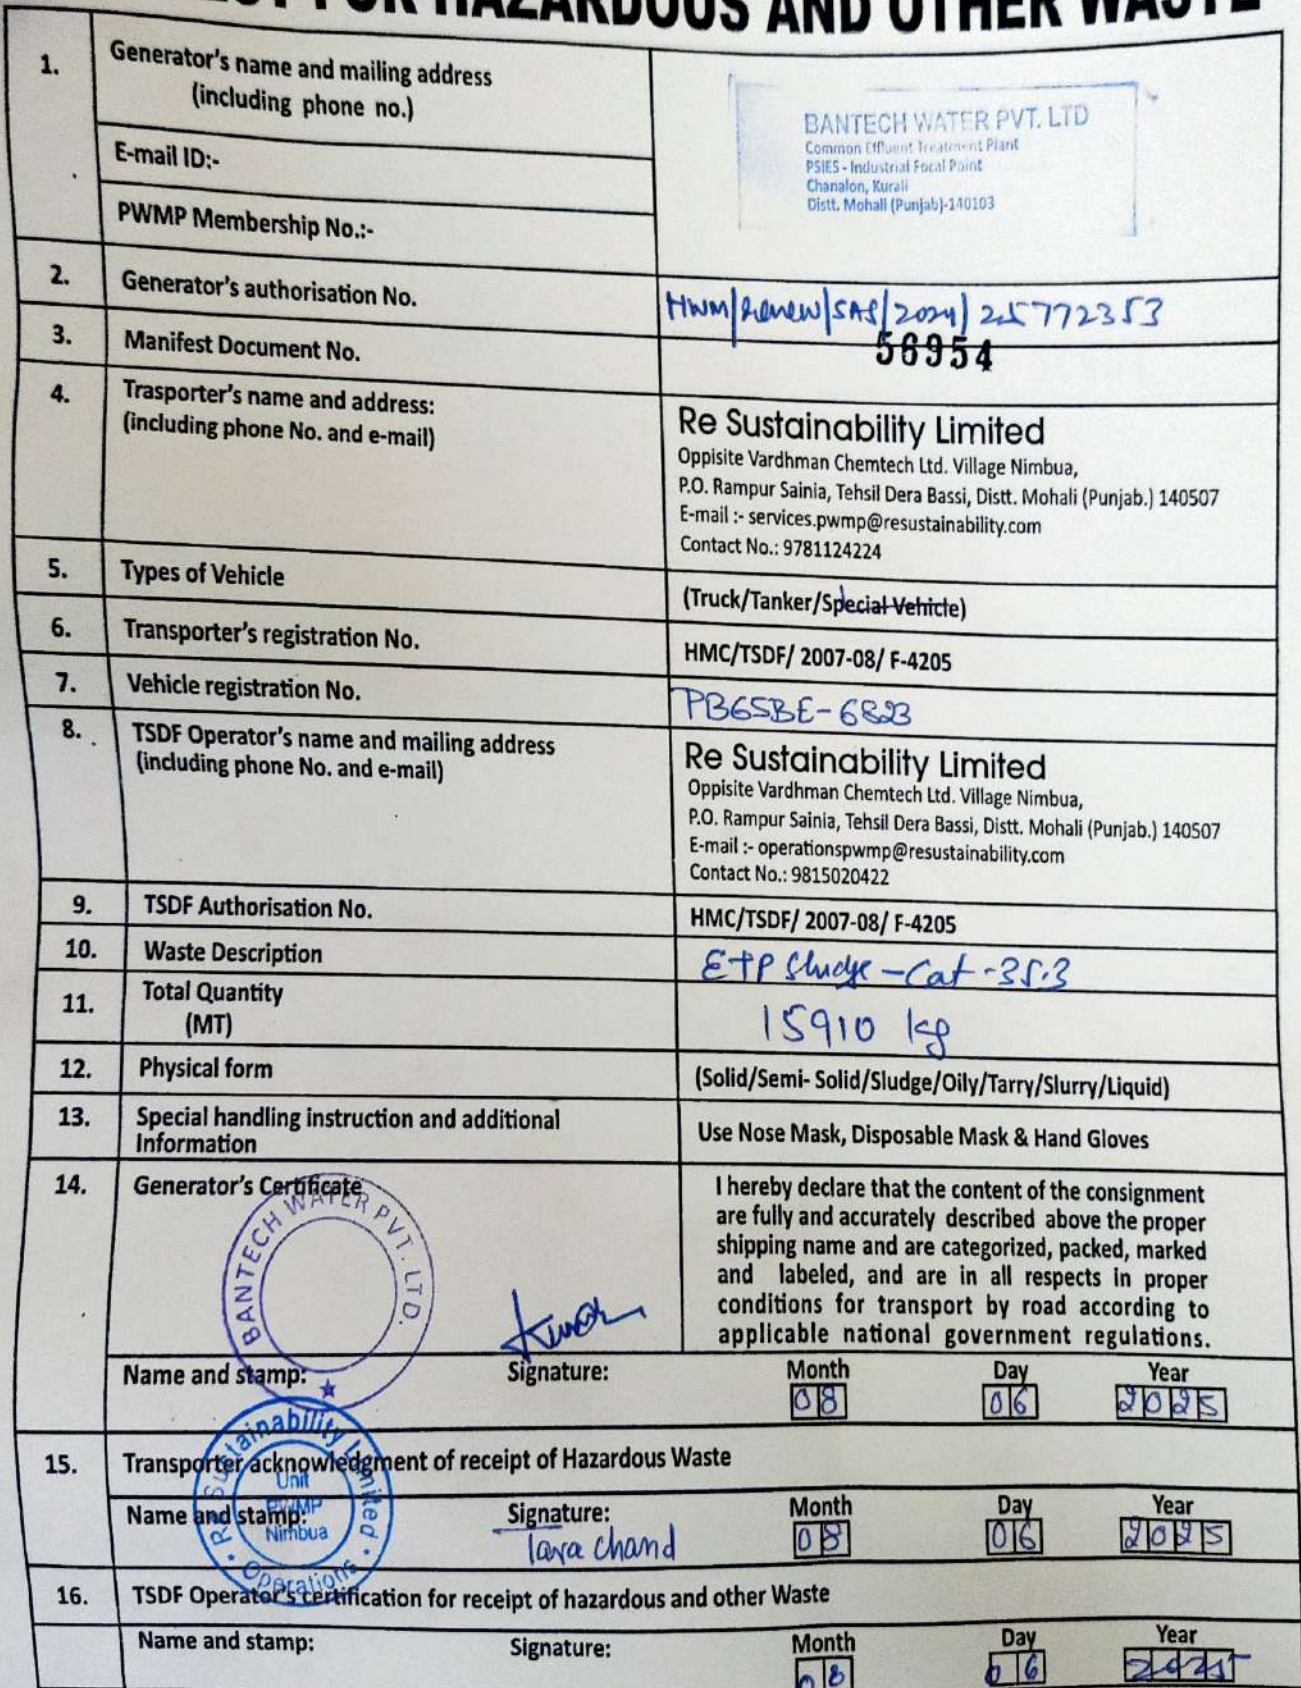 FOR HAZARDOUS AND OTHER WASTE
1. Generator's name and mailing address
(including phone no.)
E-mail ID:-
PWMP Membership No.:-
BANTECH WATER PVT. LTD
Common Effluent Treatment Plant
PSIES - Industrial Focal Point
Chanalon, Kurali
Distt. Mohali (Punjab)-140103
2. Generator's authorisation No.
HWM/Renew/SAS/2024/25772353
3. Manifest Document No.
56954
4. Trasporter's name and address:
(including phone No. and e-mail)
Re Sustainability Limited
Oppisite Vardhman Chemtech Ltd. Village Nimbua,
P.O. Rampur Sainia, Tehsil Dera Bassi, Distt. Mohali (Punjab.) 140507
E-mail :- services.pwmp@resustainability.com
Contact No.: 9781124224
5. Types of Vehicle
(Truck/Tanker/Special Vehicle)
6. Transporter's registration No.
HMC/TSDF/ 2007-08/ F-4205
7. Vehicle registration No.
PB65BE-6823
8. TSDF Operator's name and mailing address
(including phone No. and e-mail)
Re Sustainability Limited
Oppisite Vardhman Chemtech Ltd. Village Nimbua,
P.O. Rampur Sainia, Tehsil Dera Bassi, Distt. Mohali (Punjab.) 140507
E-mail :- operationspwmp@resustainability.com
Contact No.: 9815020422
9. TSDF Authorisation No.
HMC/TSDF/ 2007-08/ F-4205
10. Waste Description
ETP Sludge - Cat - 35.3
11. Total Quantity
(MT)
15910 kg
12. Physical form
(Solid/Semi- Solid/Sludge/Oily/Tarry/Slurry/Liquid)
13. Special handling instruction and additional
Information
Use Nose Mask, Disposable Mask & Hand Gloves
14. Generator's Certificate
BANTECH WATER PVT. LTD.
I hereby declare that the content of the consignment
are fully and accurately described above the proper
shipping name and are categorized, packed, marked
and labeled, and are in all respects in proper
conditions for transport by road according to
applicable national government regulations.
Name and stamp: Signature: Month Day Year
08 06 2025
Re Sustainability Limited
Unit
PWMP
Nimbua
Operations
15. Transporter acknowledgment of receipt of Hazardous Waste
Name and stamp: Signature: Month Day Year
Tara Chand 08 06 2025
16. TSDF Operator's certification for receipt of hazardous and other Waste
Name and stamp: Signature: Month Day Year
08 06 2025